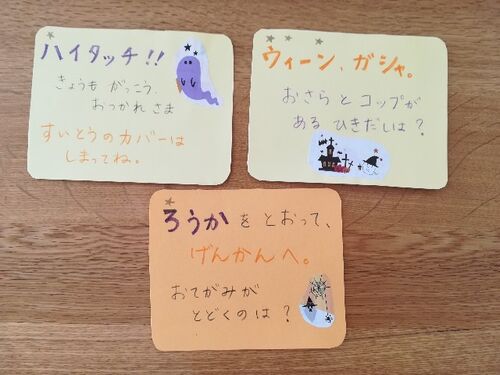 ハイタッチ!!
きょうも がっこう、
おつかれ さま
すいとう の カバーは
しまってね。
ウィーン、ガシャ。
おさら と コップが
ある ひきだしは?
ろうか を とおって、
げんかん へ。
おてがみが
とどくのは?